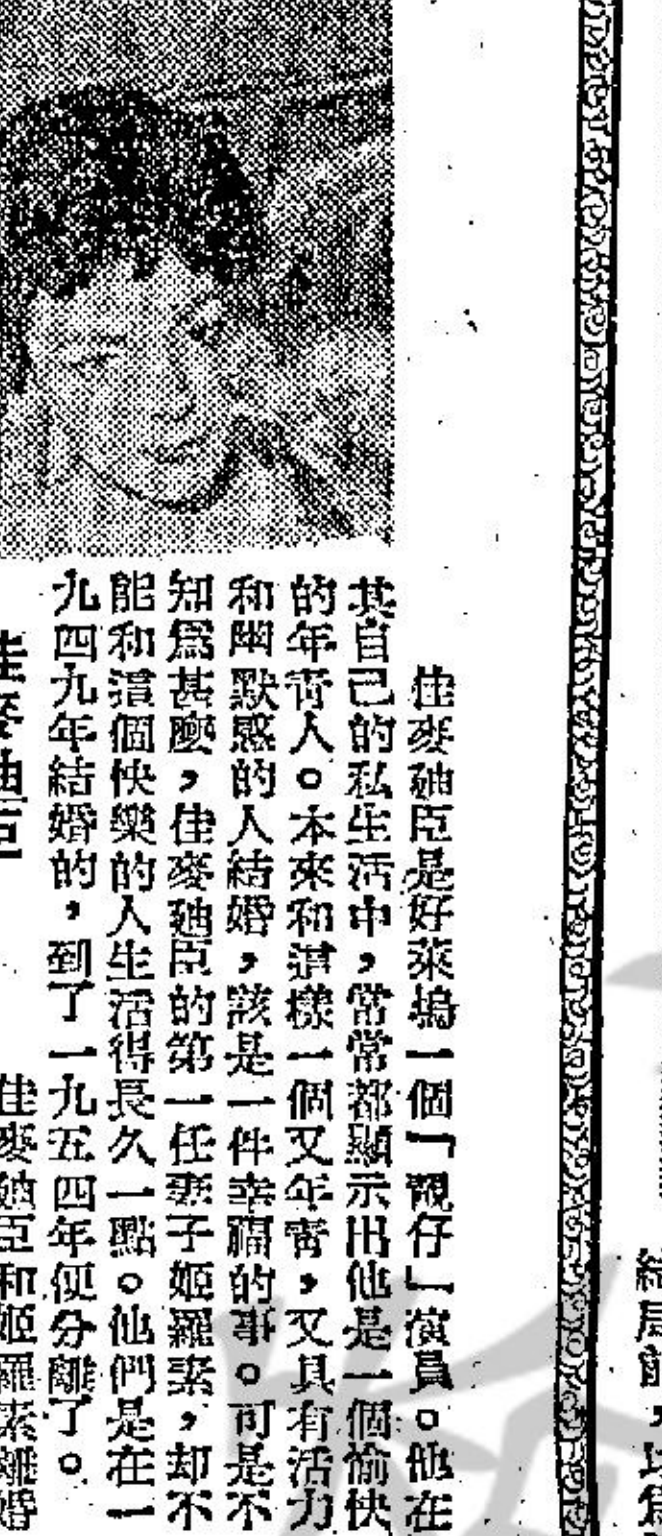 佳麥廸臣是好萊塢一個「靚仔」演員。他在
其自己的私生活中，常常都顯示出他是一個愉快
的年青人。本來和這樣一個又年青，又具有活力
和幽默惑的人結婚，該是一件幸福的事。可是不
知爲甚麼，佳麥廸臣的第一任妻子姬羅素，却不
能和這個快樂的人生活得長久一點。他們是在一
九四九年結婚的，到了一九五四年便分離了。
佳麥廸臣和姬羅素離婚
佳麥廸臣